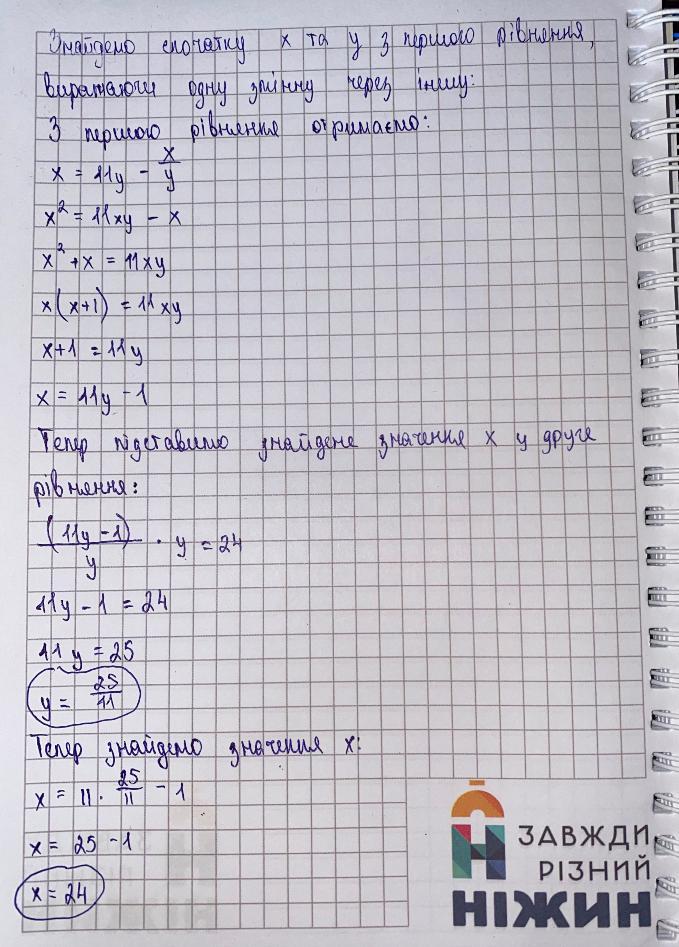 Знайдемо спочатку x та y з першого рівнення,
виражаючи одну змінну через іншу:
З першого рівнення отримаємо:
x = 11y - x/y
x² = 11xy - x
x² + x = 11xy
x(x+1) = 11xy
x+1 = 11y
x = 11y - 1
Тепер підставимо знайдене значення x у друге
рівнення:
(11y - 1)/y · y = 24
11y - 1 = 24
11y = 25
y = 25/11
Тепер знайдемо значення x:
x = 11 · 25/11 - 1
x = 25 - 1
x = 24
ЗАВЖДИ
РІЗНИЙ
НІЖИН